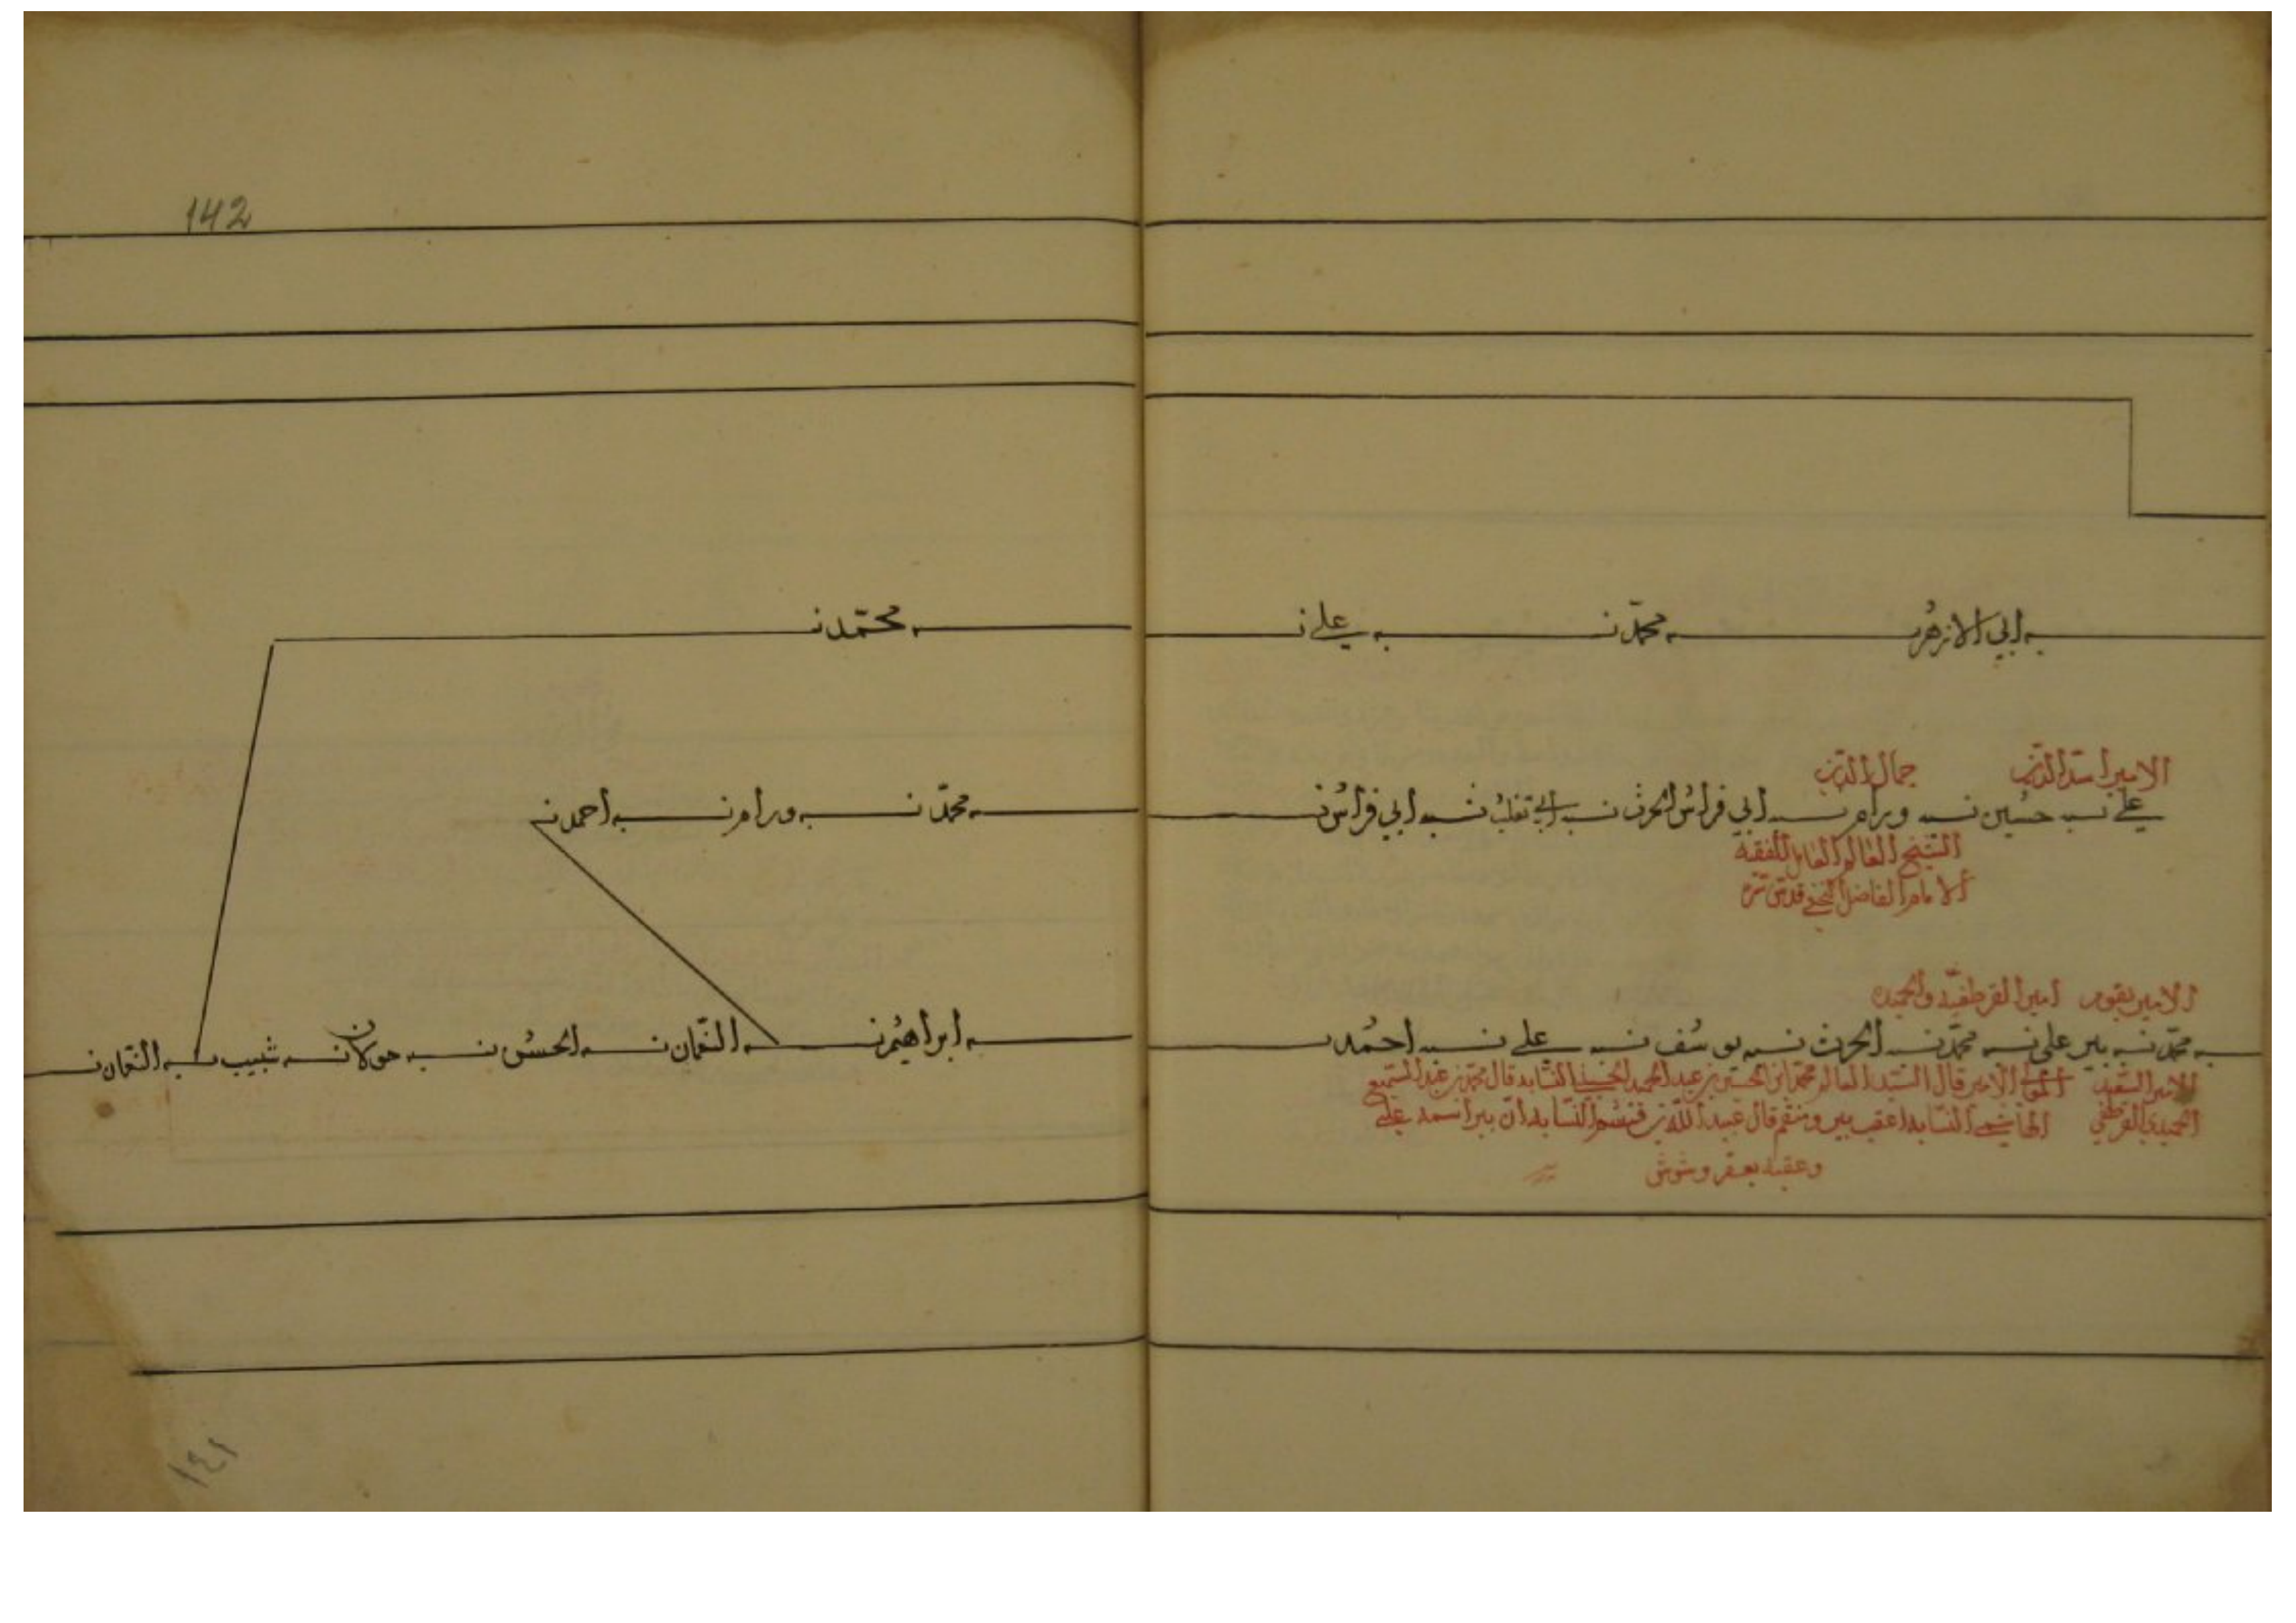 142
بن ابي الازهر بن محمد بن علي بن محمد بن
الامير اسد الدين جمال الدين
علي بن حسين بن ورام بن ابي فراس الحرث بن ابي تغلب بن ابي فراس بن محمد بن ورام بن احمد بن
الشيخ العالم العامل الفقيه
الامام الفاضل قدس سره
الامير بقوم امير القرطفيه والحميده
بن محمد بن بير علي بن محمد بن الحرث بن يوسف بن علي بن احمد بن ابراهيم بن النعمان بن الحسن بن حولان بن شبيب بن النعمان بن
الامير السعيد الامير قال السيد العالم محمد ابن الحسين بن عبد الحميد الحسيني النسابه قال محمد بن عبد السميع
الحميدي القرطفي الهاشمي النسابه اعقب بير ومنهم قال عبد الله بن النسابه ان بير اسمه علي
وعقبه بعقر وشوش
١٤١